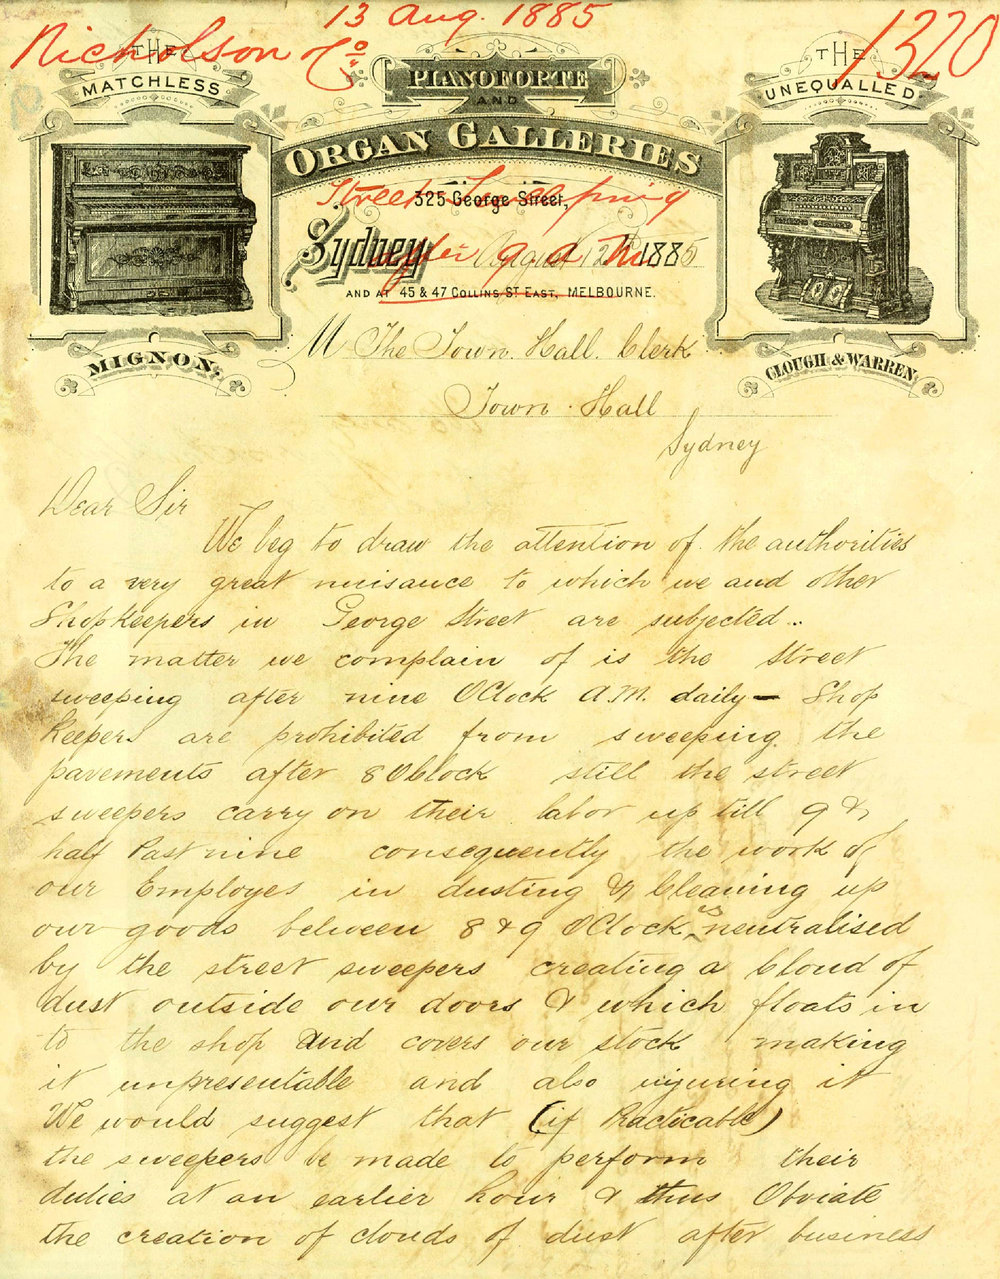 13 Aug. 1885
Nicholson & Co
1320
THE
MATCHLESS
MIGNON.
PIANOFORTE
AND
ORGAN GALLERIES
THE
UNEQUALLED
CLOUGH & WARREN
Street Sweeping
325 George Street,
after 9 a m
Sydney August 12th 1885
AND AT 45 & 47 COLLINS ST EAST, MELBOURNE.
M The Town Hall Clerk
Town Hall
Sydney
Dear Sir
We beg to draw the attention of the authorities
to a very great nuisance to which we and other
Shopkeepers in George Street are subjected..
The matter we complain of is the street
sweeping after nine OClock A.M. daily — Shop
keepers are prohibited from sweeping the
pavements after 8 OClock still the street
sweepers carry on their labor up till 9 &
half Past nine consequently the work of
our Employes in dusting & Cleaning up
our goods between 8 & 9 OClock is neutralised
by the street sweepers creating a Cloud of
dust outside our doors & which floats in
to the shop and covers our stock making
it unpresentable and also injuring it
We would suggest that (if Practicable)
the sweepers be made to perform their
duties at an earlier hour & thus Obviate
the creation of clouds of dust after business